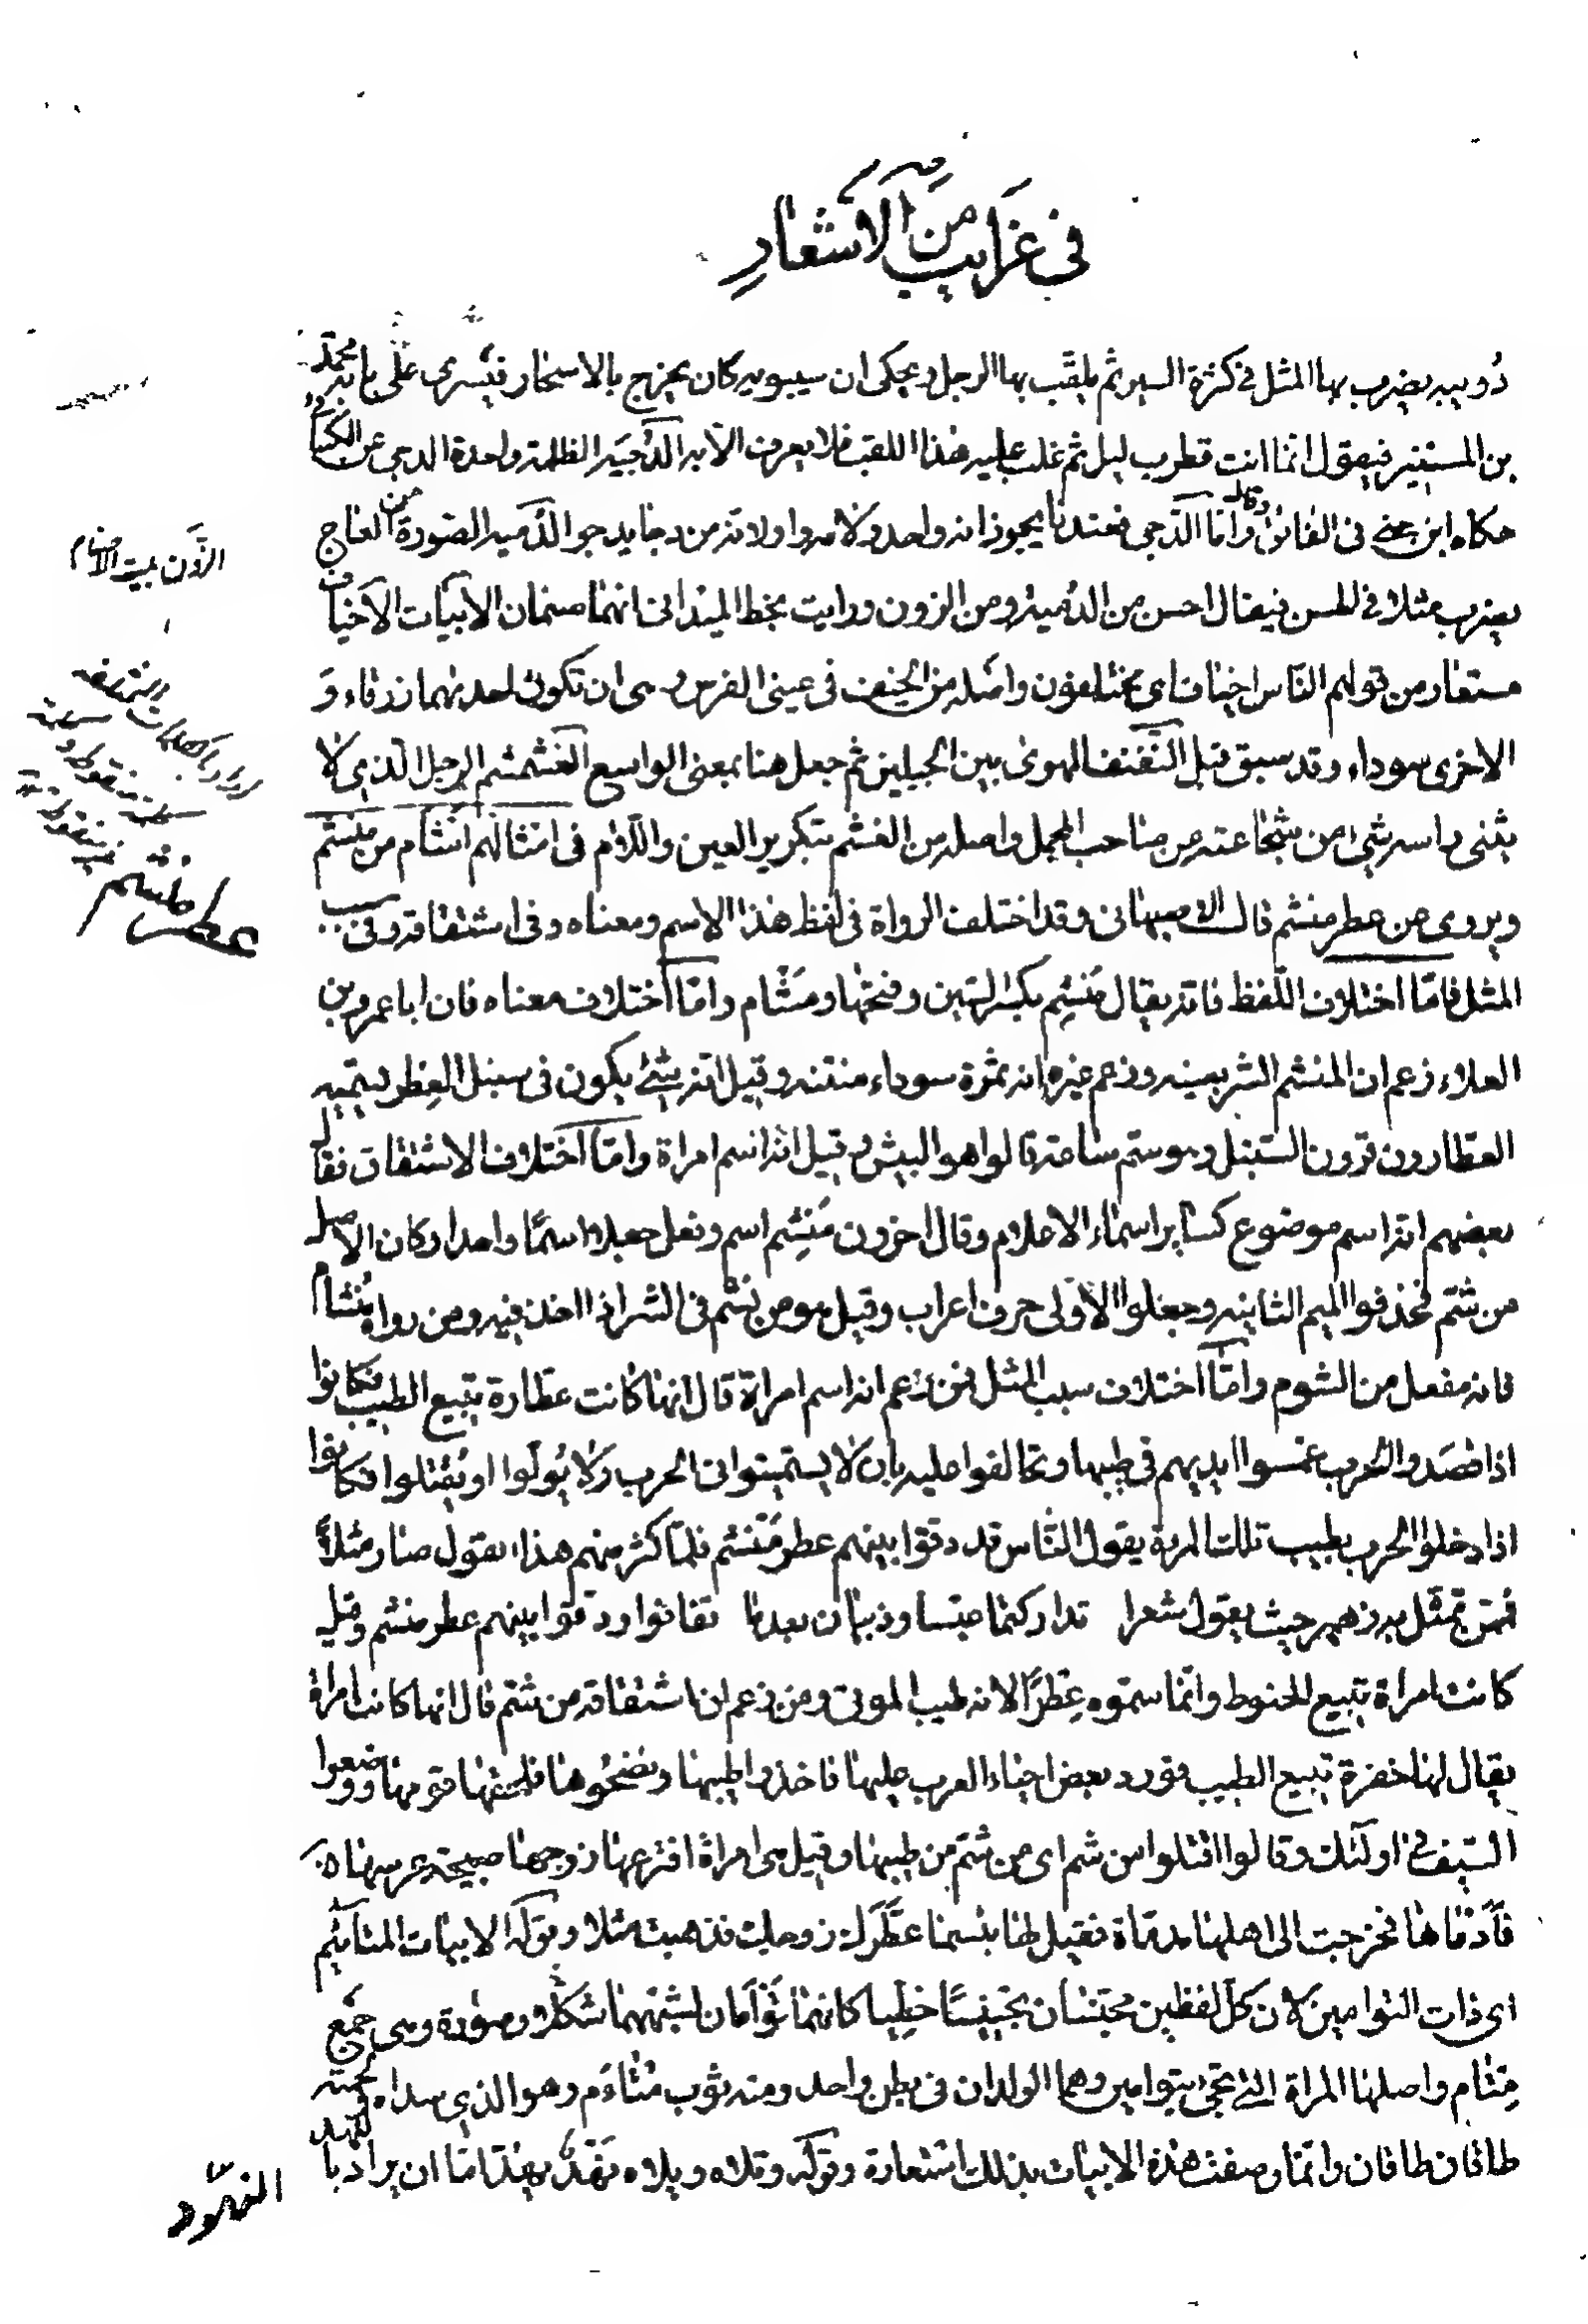 في غرايب من الأشعار
دُويبه يضرب بها المثل في كثرة السير ثم يلقب بها الرجل ويحكى ان سيبويه كان يخرج بالاسحار فيسرى على بابه محمد
بن المستنير فيقول انما انت قطرب ليل ثم غلب عليه هذا اللقب فلا يعرف الا به الدُجيَه الظلمة واحدة الدجى عن الكسائي
حكاه ابن جنى في الفائق وقال واما الدجى فعندنا يجوز انه واحد ولامه واو لانه من دجا يدجو الدُميه الصورة من العاج
يضرب مثلا في الحسن فيقال احسن من الدُمية ومن الزون ورايت بخط الميداني انهما صنمان الابيات الاخياف
مستعار من قولهم الناس اخياف اى مختلفون واصله من الخيف في عينى الفرس وهى ان تكون احديهما زرقاء و
الاخرى سوداء وقد سبق قبل النَّفنف الهوى بين الجبلين ثم جعل هنا بمعنى الواسع الغشمشم الرجل الذى لا
يثنى راسه شئ من شجاعته عن صاحب المجمل واصله من الغشم بتكرير العين واللام في امثالهم اشأم من منشم
ويروى من عطر منشم قال الاصبهانى وقد اختلف الرواة في لفظ هذا الاسم ومعناه وفى اشتقاقه وفى سبب
المثل فاما اختلاف اللفظ فانه يقال مَنشِم بكسر الشين وفتحها ومشأم واما اختلاف معناه فان ابا عمرو بن
العلاء زعم ان المنشم الشر بعينه وزعم غيره انه ثمرة سوداء منتنه وقيل انه شئ يكون في سنبل العطر يسميه
العطارون قرون السنبل وهو سم ساعة قالوا هو البيش وقيل انه اسم امراة واما اختلاف الاشتقاق فقال
بعضهم انه اسم موضوع كساير اسماء الاعلام وقال اخرون مَنشِم اسم وفعل جعلا اسمًا واحدا وكان الاصل
من شم فحذفوا الميم الثانيه وجعلوا الاولى حرف اعراب وقيل هو من نشم في الشر اذا اخذ فيه ومن رواه مشأم
فانه مفعل من الشوم واما اختلاف سبب المثل فمن زعم انه اسم امراة قال انها كانت عطارة تبيع الطيب فكانوا
اذا قصدوا الحرب غمسوا ايديهم في طيبها وتحالفوا عليه بان لا يستميتوا في الحرب ولا يُولّوا او يُقتلوا فكانوا
اذا دخلوا الحرب بطيب تلك المرة يقول الناس قد دقوا بينهم عطر مَنشم فلما كثر منهم هذا القول صار مثلاً
فممن تمثل به زهير حيث يقول شعرا تداركتما عبسا وذبيان بعدما تفانوا ودقوا بينهم عطر منشم وقيل
كانت امراة تبيع الحنوط وانما سموه عِطرًا لانه طيب الموتى ومن زعم ان اشتقاقه من شم قال انها كانت امراة
يقال لها خفرة تبيع الطيب فورد بعض احياء العرب عليها فاخذوا طيبها وفضحوها فلحقها قومها ووضعوا
السيف في اولئك وقالوا اقتلوا من شم اى من شم من طيبها وقيل هى امراة افترعها زوجها صبيحة عرسها
فأدماها فخرجت الى اهلها مدماة فقيل لها بئسما عطَّرك زوجك فذهبت مثلا وقوله الابيات المتائيم
اى ذات التوامين لان كل لفظين مجتسان تجنيسًا خطيا كانهما تؤامان لشبههما شكلا وصورة وهى جمع
مِتئام واصلها المراة التى تجئ بتوامين وهما الولدان في بطن واحد ومنه ثوب مُتْاءَم وهو الذى سداه ولحمته
طاقان طاقان وانما وصفت هذه الابيات بذلك استعارة وقوله وتلاه ويلاه نَهْدٌ يهذ اما ان يراد بالنهد
النهود
الزون بيت الاصنام
عطر منشم